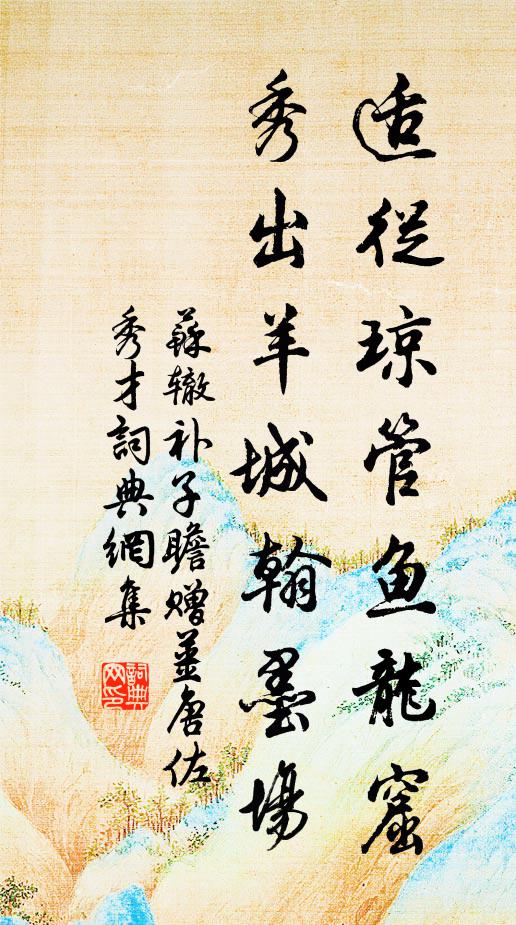 适從琼管鱼龍窟
秀出羊城翰墨場
蘇辙补子瞻赠姜唐佐
秀才詞典網集
詞典網印